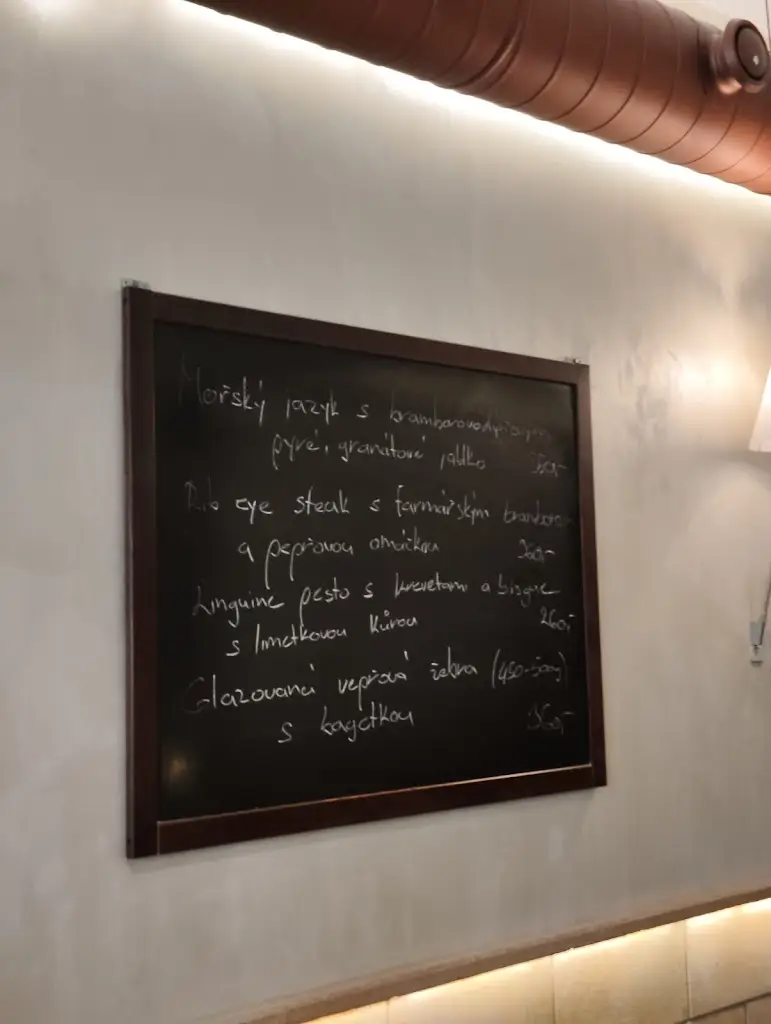 Mořský jazyk s bramborovodýňovým
pyré, granátové jablko
Rib eye steak s farmářským
a pepřovou omáčkou
Linguine pesto s krevetami a bisque
s limetkovou kůrou 260,-
Glazovaná vepřová žebra (450-500g)
s bagetkou